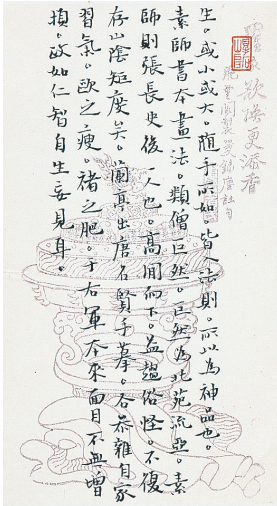 欲更添香
生。或小或大。隨手所如。皆入法則。所以為神品也。
素師書本畫法。類僧巨然。巨然為北苑流亞。素
師則張長史後一人也。高閒而下。益趨俗怪。不復
存山陰矩度矣。蘭亭出唐名賢手摹。各參雜自家
習氣。歐之瘦。褚之肥。于右軍本來面目不無增
損。政如仁智自生妄見耳。